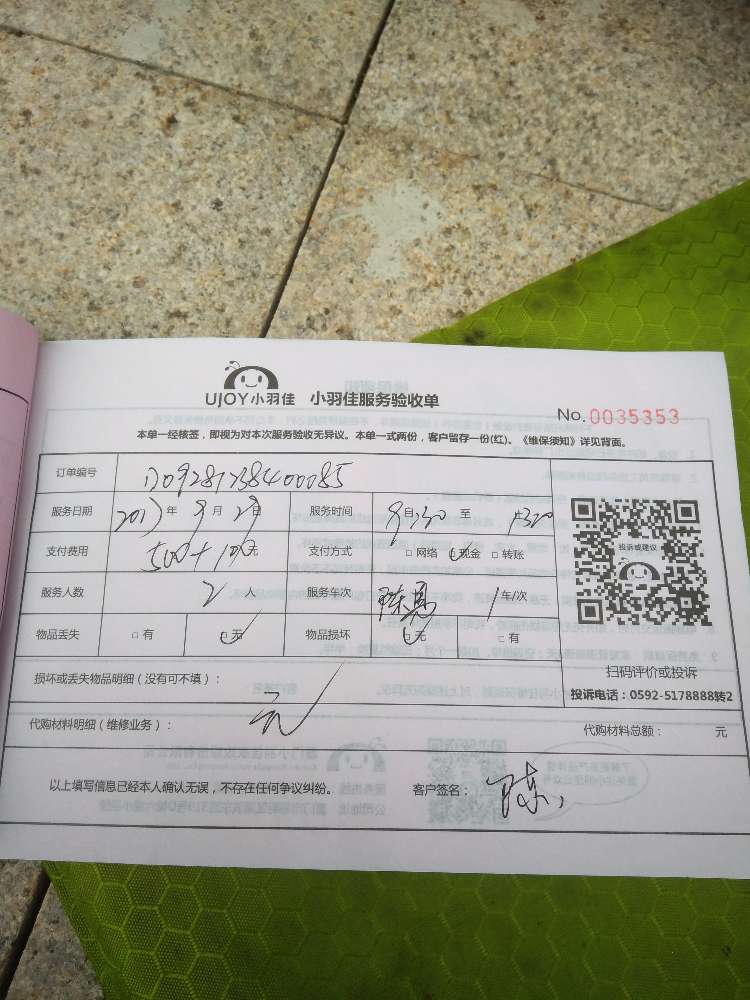 UJOY小羽佳 小羽佳服务验收单
No.0035353
本单一经核签，即视为对本次服务验收无异议。本单一式两份，客户留存一份(红)、《维保须知》详见背面。
订单编号
服务日期 2017年9月29日 服务时间 至
支付费用 500+10元 支付方式 □网络 现金 □转账
服务人数 2人 服务车次 1车/次
物品丢失 □有 无 物品损坏 无 □有
损坏或丢失物品明细(没有可不填)： 无
代购材料明细(维修业务)： 代购材料总额： 元
以上填写信息已经本人确认无误，不存在任何争议纠纷。 客户签名： 陈
投诉或建议
扫码评价或投诉
投诉电话：0592-5178888转2